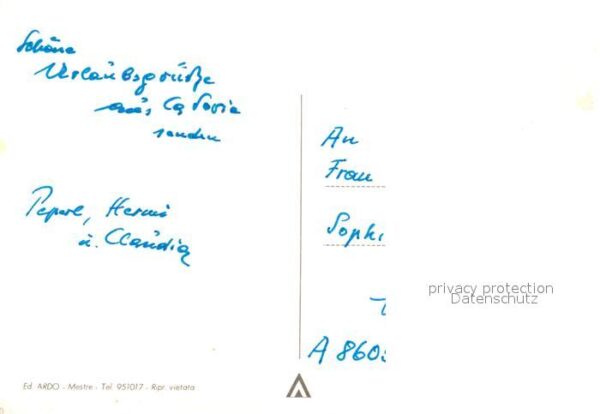 Schöne
Urlaubsgrüße
aus Ca Savio
senden
Peperl, Hermi
u. Claudia
An
Frau
Soph
A 860
privacy protection
Datenschutz
Ed. ARDO - Mestre - Tel. 951017 - Ripr. vietata